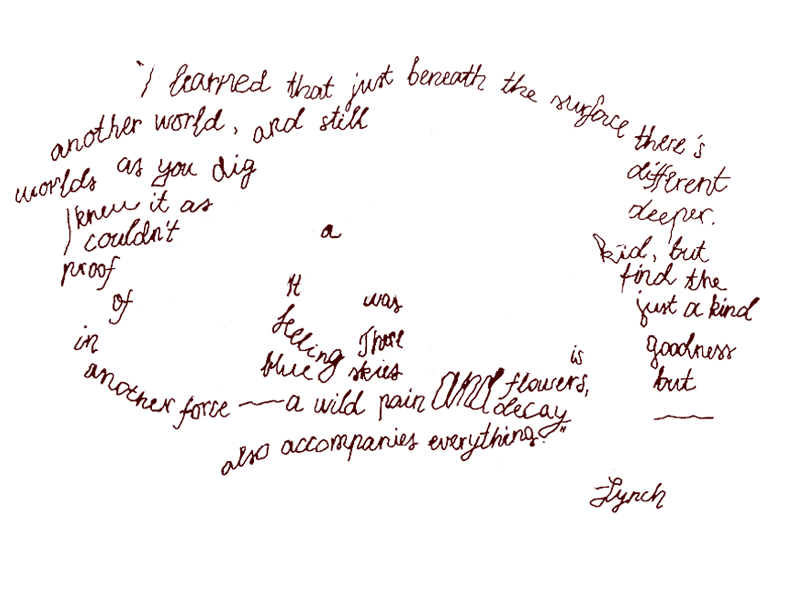 "I learned that just beneath the surface there's
another world, and still different
worlds as you dig deeper.
I knew it as a kid, but
couldn't find the
proof It was just a kind
of feeling There is goodness
in blue skies and flowers, but
another force — a wild pain and decay —
also accompanies everything."
Lynch